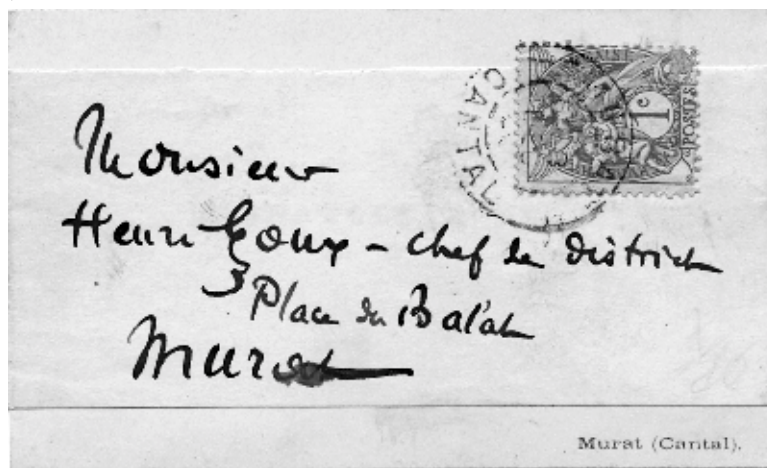 1c
POSTES
CANTAL
Monsieur
Henri Goux - chef de district
3 Place du Balat
Murat
Murat (Cantal).